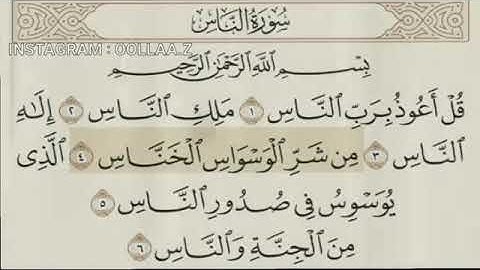 سُورَةُ النَّاسِ
INSTAGRAM : OOLLAA.Z
بِسْمِ اللَّهِ الرَّحْمَٰنِ الرَّحِيمِ
قُلْ أَعُوذُ بِرَبِّ النَّاسِ ١ مَلِكِ النَّاسِ ٢ إِلَٰهِ
النَّاسِ ٣ مِن شَرِّ الْوَسْوَاسِ الْخَنَّاسِ ٤ الَّذِي
يُوَسْوِسُ فِي صُدُورِ النَّاسِ ٥
مِنَ الْجِنَّةِ وَالنَّاسِ ٦